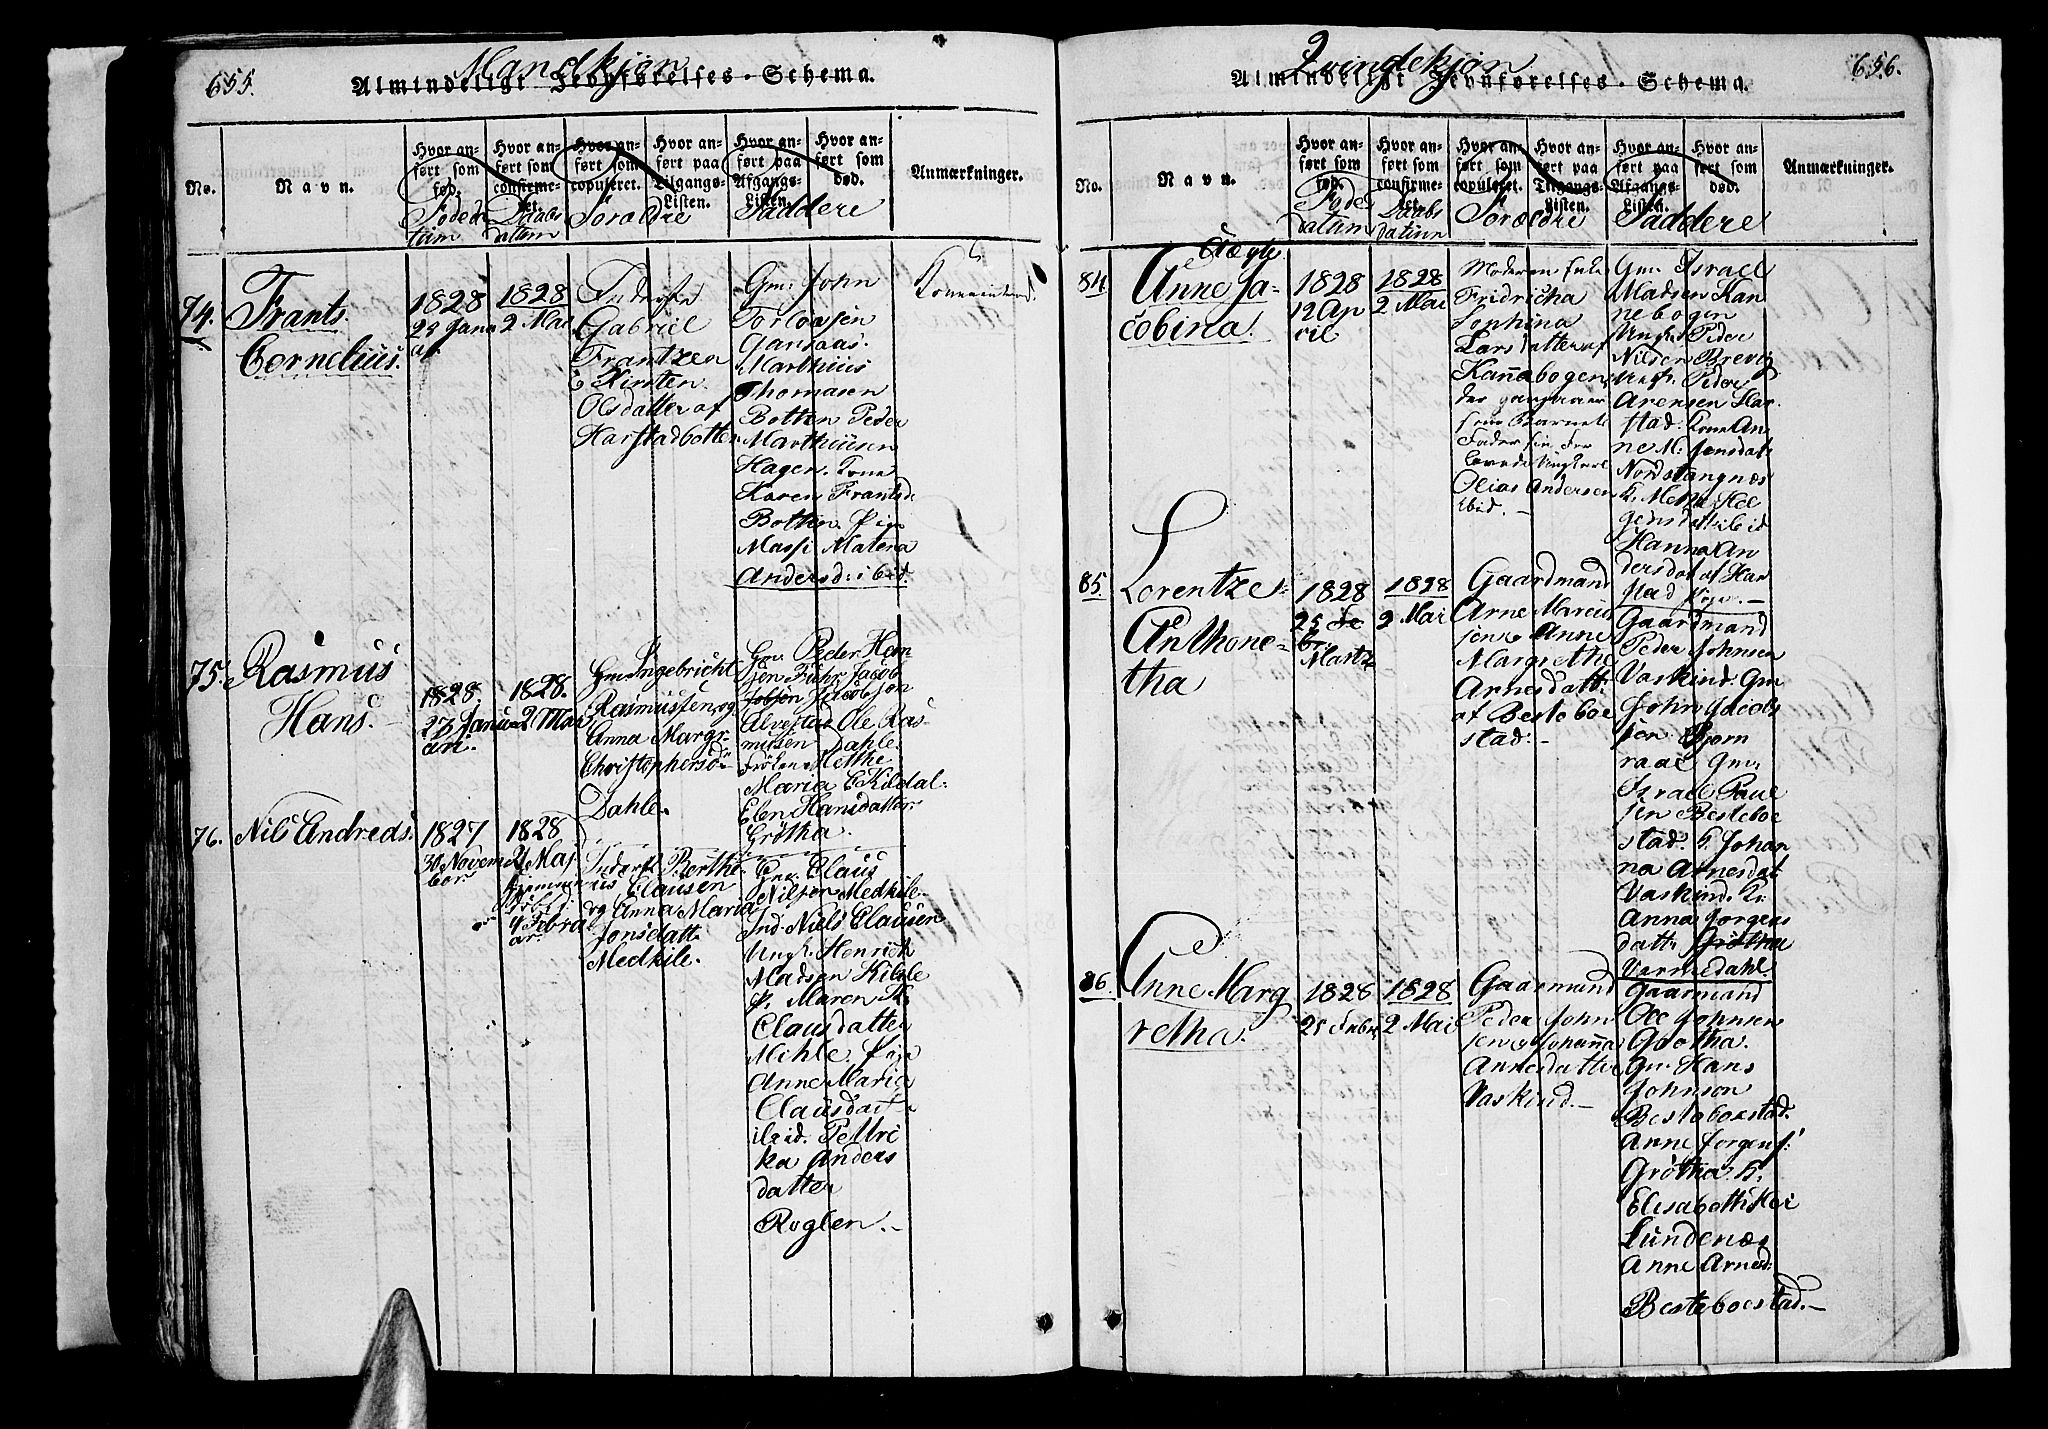 655.
Mandkjøn
Almindeligt Jevnførelses-Schema.
No.
Navn.
Hvor anført som fød.
Hvor anført som confirmeret.
Hvor anført som copuleret.
Hvor anført paa Tilgangs-Listen.
Hvor anført paa Afgangs-Listen.
Hvor anført som død.
Anmærkninger.
Fødeda
tum
Daabs
datum
Forældre
Faddere
74.
Frants
Cornelius.
1828
1828
2 Mai
Gabriel
Frantzen
& Kirsten
Olsdatter af
Harstadbotten
Gm: John
Torloosen
Gansaas.
Marthiius
Thomasen
Botten Peder
Marthiusen
Hagen. Kone
Karen Frantsd:
Botten. Pige
Massi Malena
Andersd: ibid.
75.
Rasmus
Hans.
1828
27 Janu
ari.
1828.
2 Mai
Gm. Ingebricht
Rasmussen og
Anna Margr:
Christophersd:
Dahle.
Gm. Peder Hem
Jacob
Jacobsen
Alvestad Ole Ras-
musen Dahle.
Frøken Methe
Maria E Kildal.
Elen Hansdatter
Grøtha.
76.
Nils Andreas.
1827
30 Novem
ber.
1828
2 Mai
4 Febru
ar.
Inderst Berthe
us Clausen
og Anna Maria
Jonsdatt.
Medkile.
Gm. Claus
Nilsen Medkile.
Ind. Niels Clausen
Ungk. Henrich
Madsen Kilsle
P. Maren K.
Clausdatter
Mihle. Pige
Anne Maria
Clausdatt
ibid. Petteri
ka Anders
datter
Roglen.-
656.
Qvindekjøn
Almindeligt Jevnførelses-Schema.
No.
Navn.
Hvor anført som fød.
Hvor anført som confirmeret.
Hvor anført som copuleret.
Hvor anført paa Tilgangs-Listen.
Hvor anført paa Afgangs-Listen.
Hvor anført som død.
Anmærkninger.
Føde
datum
Daabs
datum
Forældre
Faddere
84
Uægte
Anne Ja-
cobina.
1828
12 Ap
ril
1828
2 Mai
Moderen Enke
Fridricha
Sophina
Larsdatter af
Kannebogen,
Barnets
Fader
Olias Andersen
ibid.-
Gm. Israel
Madsen Kan
nebogen
Ungk. Peder
Nilsen Brevig
Ungk. Peder
Arensen Har
stad. Kone An
ne M: Jonsdat:
Nordstangnæs
K. Mette Hel
gensdatt ibid
Hanna An
dersdat af Har
stad Pige.-
85.
Lorentze
Anthone-
tha
1828
25
Martz
1828
2 Mai
Gaardmand
Arne Marcus
sen & Anne
Margrethe
Arnesdatt:
af Besteboe
stad.-
Gaardmand
Peder Johnsen
Vaskind. Gm
John Jacob
sen Bjørn
raae Gm.
Israel Paul
sen Besteboe
stad. K. Johan
na Arnesdat
Vaskind. K:
Anna Jorgens
datt. Grøtha
86.
Anne Marg
retha.
1828
25 Febr.
1828
2 Mai
Gaarmand
Peder John
sen & Johanna
Arnesdatter
Vaskind.-
Gaarmand
Ole Johnsen
Grøtha.
Gm. Hans
Johnson
Besteboestad.
Anne Jorgens:
Grøtha. K.
Elisabeth
Lundenæs
Anne Arnesd:
Besteboestad.-